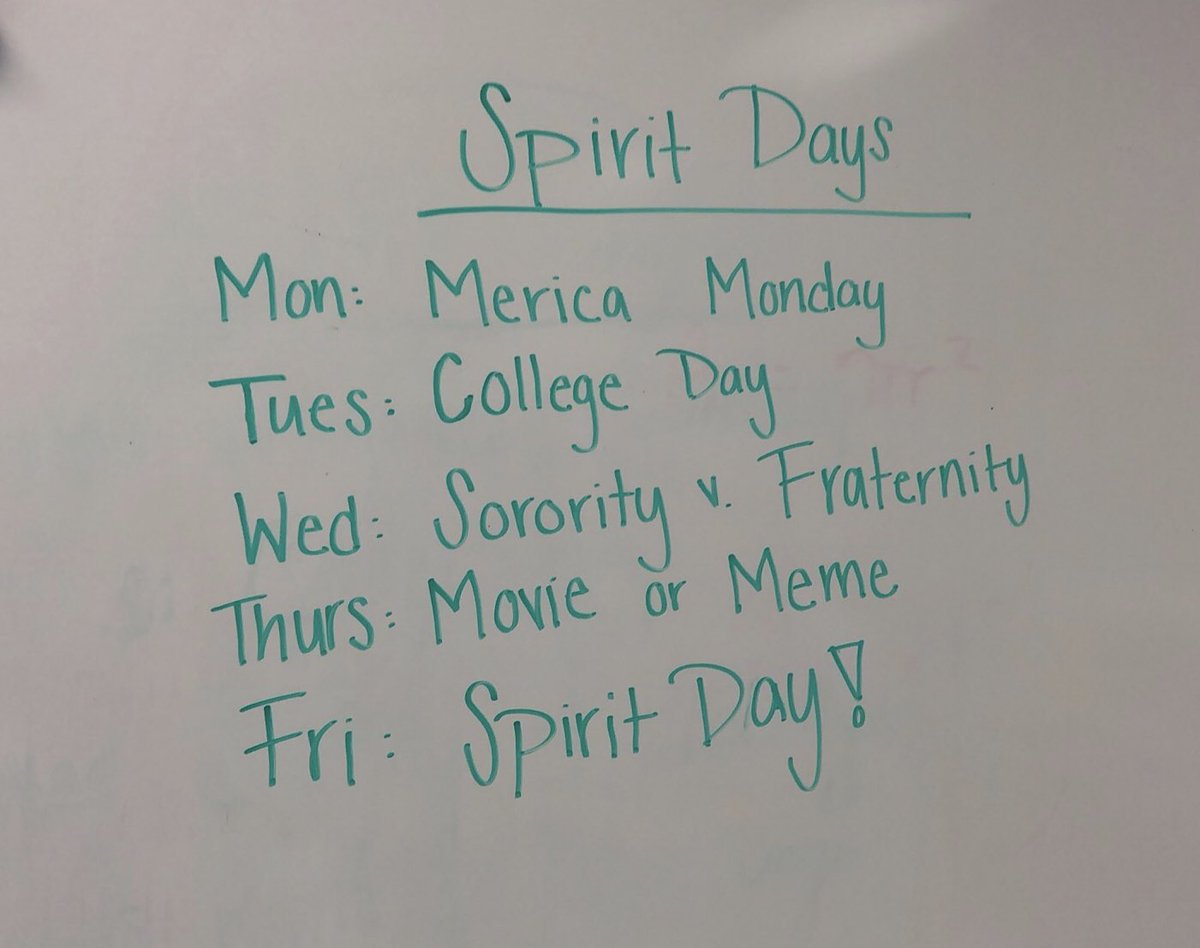 Spirit Days
Mon: Merica Monday
Tues: College Day
Wed: Sorority v. Fraternity
Thurs: Movie or Meme
Fri: Spirit Day!